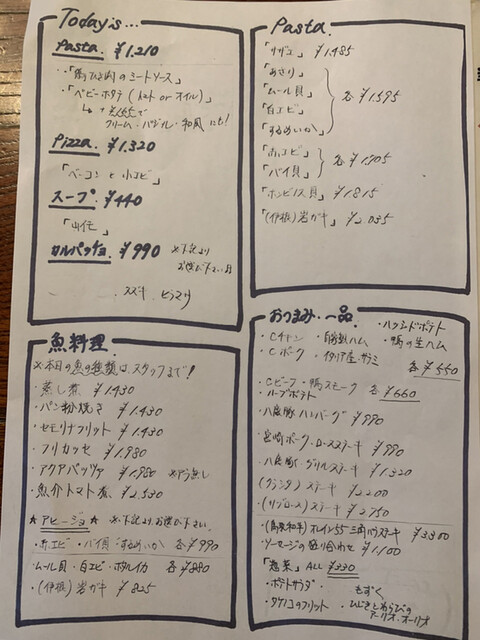 Today's...
Pasta ¥1,210
のミートソース」
・「ベビーホタテ (トマト or オイル)」
クリーム・バジル・和風にも!
Pizza ¥1,320
「ベーコンと小エビ」
スープ ¥440
カルパッチョ ¥990 ※下記より
お選び下さい
スズキ ヒラマサ
Pasta
「サザエ」 ¥1,485
「あさり」
「ムール貝」
「白エビ」
「するめいか」
各¥1,595
「赤エビ」
「バイ貝」
各¥1,705
「ホンビノス貝」 ¥1,815
「(伊根)岩ガキ」 ¥2,035
魚料理
※本日の魚の種類は、スタッフまで!
・蒸し煮 ¥1,430
・パン粉焼き ¥1,430
・セモリナフリット ¥1,430
・フリカッセ ¥1,980
・アクアパッツァ ¥1,980
・魚介トマト煮 ¥2,530
★アヒージョ★ ※下記よりお選び下さい。
・赤エビ・バイ貝・するめいか 各¥990
・ムール貝・白エビ・ 各¥880
・(伊根)岩ガキ ¥825
おつまみ・一品
・ハッシュドポテト
・Cチキン ・自家製ハム ・鴨の生ハム
・Cポーク ・イタリア産サラミ
各¥550
・Cビーフ・鴨スモーク 各¥660
・ハーブポテト
・八鹿豚ハンバーグ ¥990
・宮崎ポーク・ロースステーキ ¥990
・八鹿豚・グリルステーキ ¥1,320
ステーキ ¥2,200
・(リブロース)ステーキ ¥2,750
・(鳥取和牛)オレイン55 三角バラステーキ ¥3,300
・ソーセージの盛り合わせ ¥1,100
「惣菜」 ALL ¥330
・ポテトサラダ ・もずく
・タケノコのフリット ・ひじきとわらびの
アーリオ・オーリオ